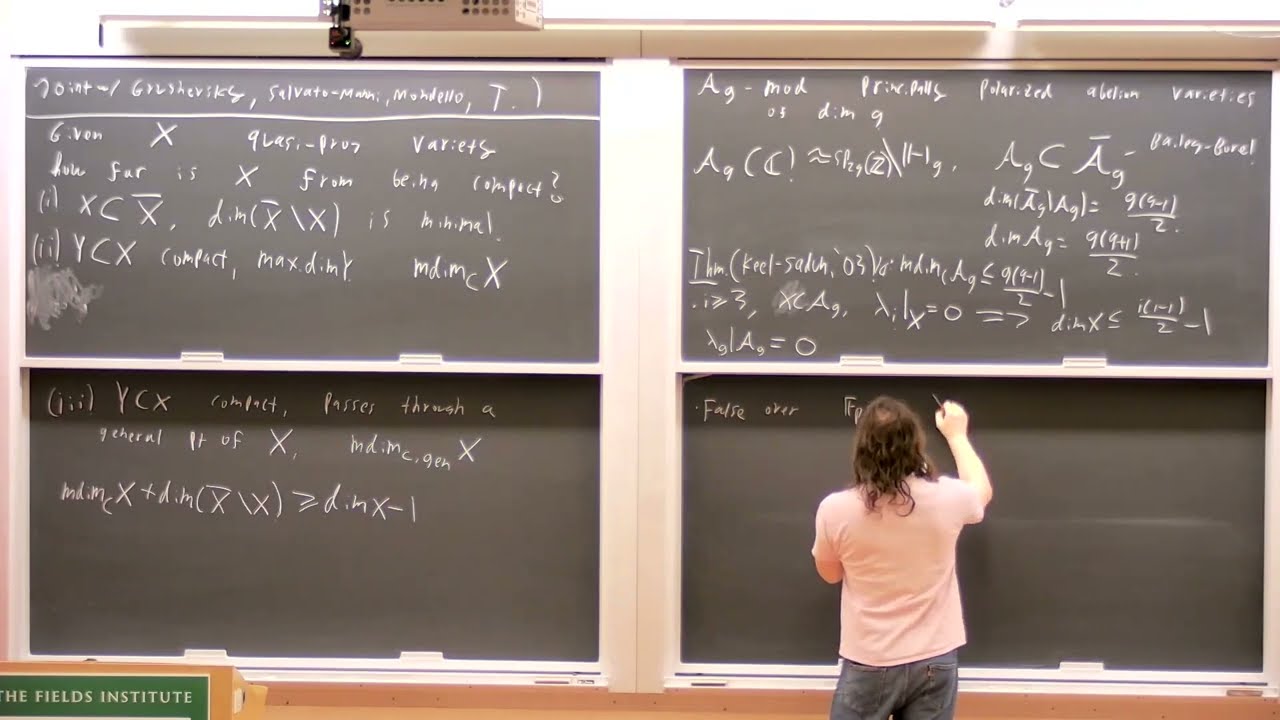 Joint w/ Grushevsky, Salvati-Manni, Mondello, T. )
Given X quasi-proj variety
how far is X from being compact?
(i) X⊂X̅, dim(X̅\X) is minimal.
(ii) Y⊂X compact, max.dimY mdim_C X
(iii) Y⊂X compact, passes through a
general pt of X, mdim_{C,gen} X
mdim_C X + dim(X̅\X) ≥ dim X-1
A_g - mod principally polarized abelian varieties
of dim g
A_g(ℂ) ≈ Sp_{2g}(ℤ)\\ℍ_g, A_g ⊂ A̅_g - Bailey-Borel
dim(A̅_g\A_g) = g(g-1)/2.
dim A_g = g(g+1)/2.
Thm. (Keel-Sadun, '03) mdim_C A_g ≤ g(g-1)/2 -1
· i≥3, X⊂A_g, λ_i|_X=0 => dimX ≤ i(i-1)/2 -1
λ_g|A_g = 0
· False over 𝔽_p
THE FIELDS INSTITUTE